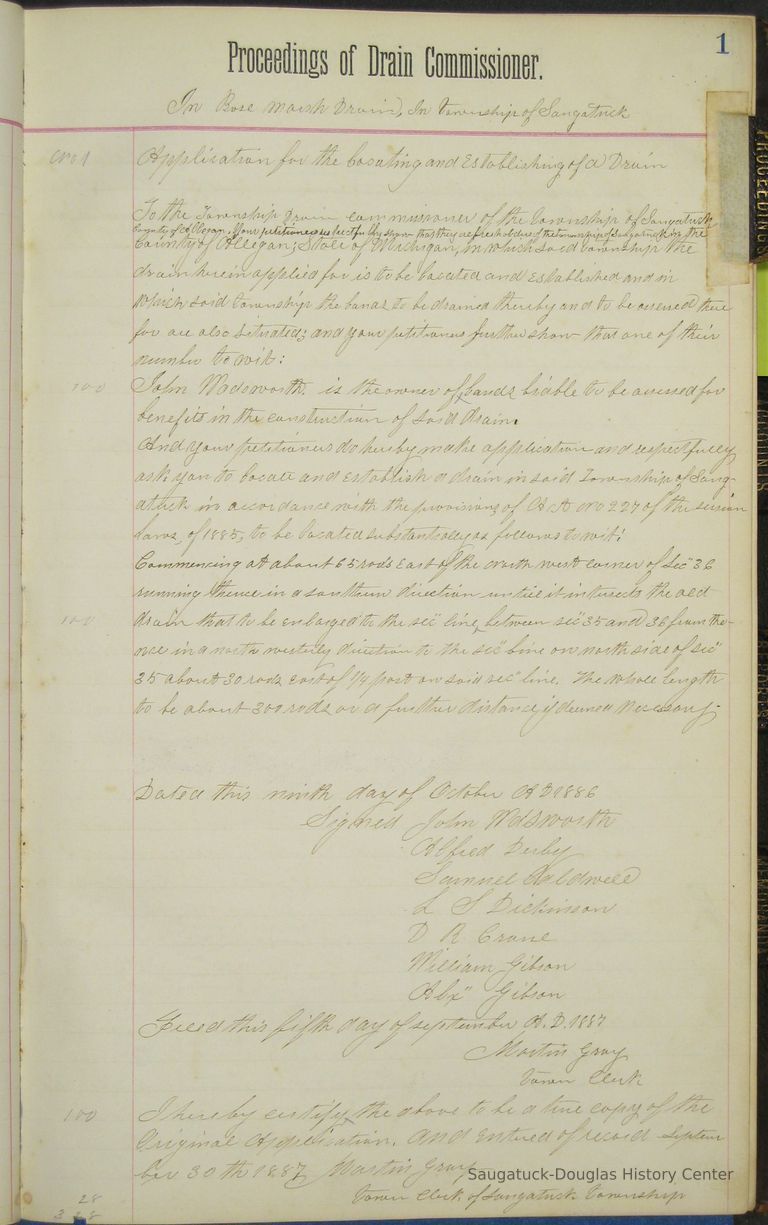 1
Proceedings of Drain Commissioner.
In Bose Marsh Drain, In township of Saugatuck
No 1
Application for the Locating and Establishing of a Drain
To the Township Drain commissioner of the township of Saugatuck
County of Allegan. Your petitioners respectfully show that they are freeholders of the township of Saugatuck in the
County of Allegan, State of Michigan, in which said township the
drain herein applied for is to be located and established and in
which said township the lands to be drained thereby and to be assessed there
for are also situated; and your petitioners further show that one of their
number to wit:
100
John Wadsworth, is the owner of lands liable to be assessed for
benefits in the construction of said drain.
And your petitioners do hereby make application and respectfully
ask you to locate and establish a drain in said Township of Saug-
atuck in accordance with the provisions of Act No 227 of the session
laws of 1885, to be located substantially as follows to wit:
Commencing at about 65 rods East of the north west corner of sec 36
running thence in a southern direction untill it intersects the old
100
drain that to be enlarged to the sec line between sec 35 and 36 from the-
nce in a north westerly direction to the sec line on north side of sec
35 about 30 rods east of 1/4 post on said sec line. The whole length
to be about 300 rods or a further distance if deemed Necessary.
Dated this ninth day of October A D 1886
Signed John Wdsworth
Alfred Derby
Samuel Caldwell
L S Dickinson
D R Crane
William Gibson
Alx" Gibson
Filed this fifth day of september A. D. 1887
Martin Gray
Town Clerk
100
I hereby certify the above to be a true copy of the
Original Application. And Entered of record Septem
ber 30th 1887 Martin Gray
Saugatuck-Douglas History Center
Town Clerk of Saugatuck Township
28
3 28